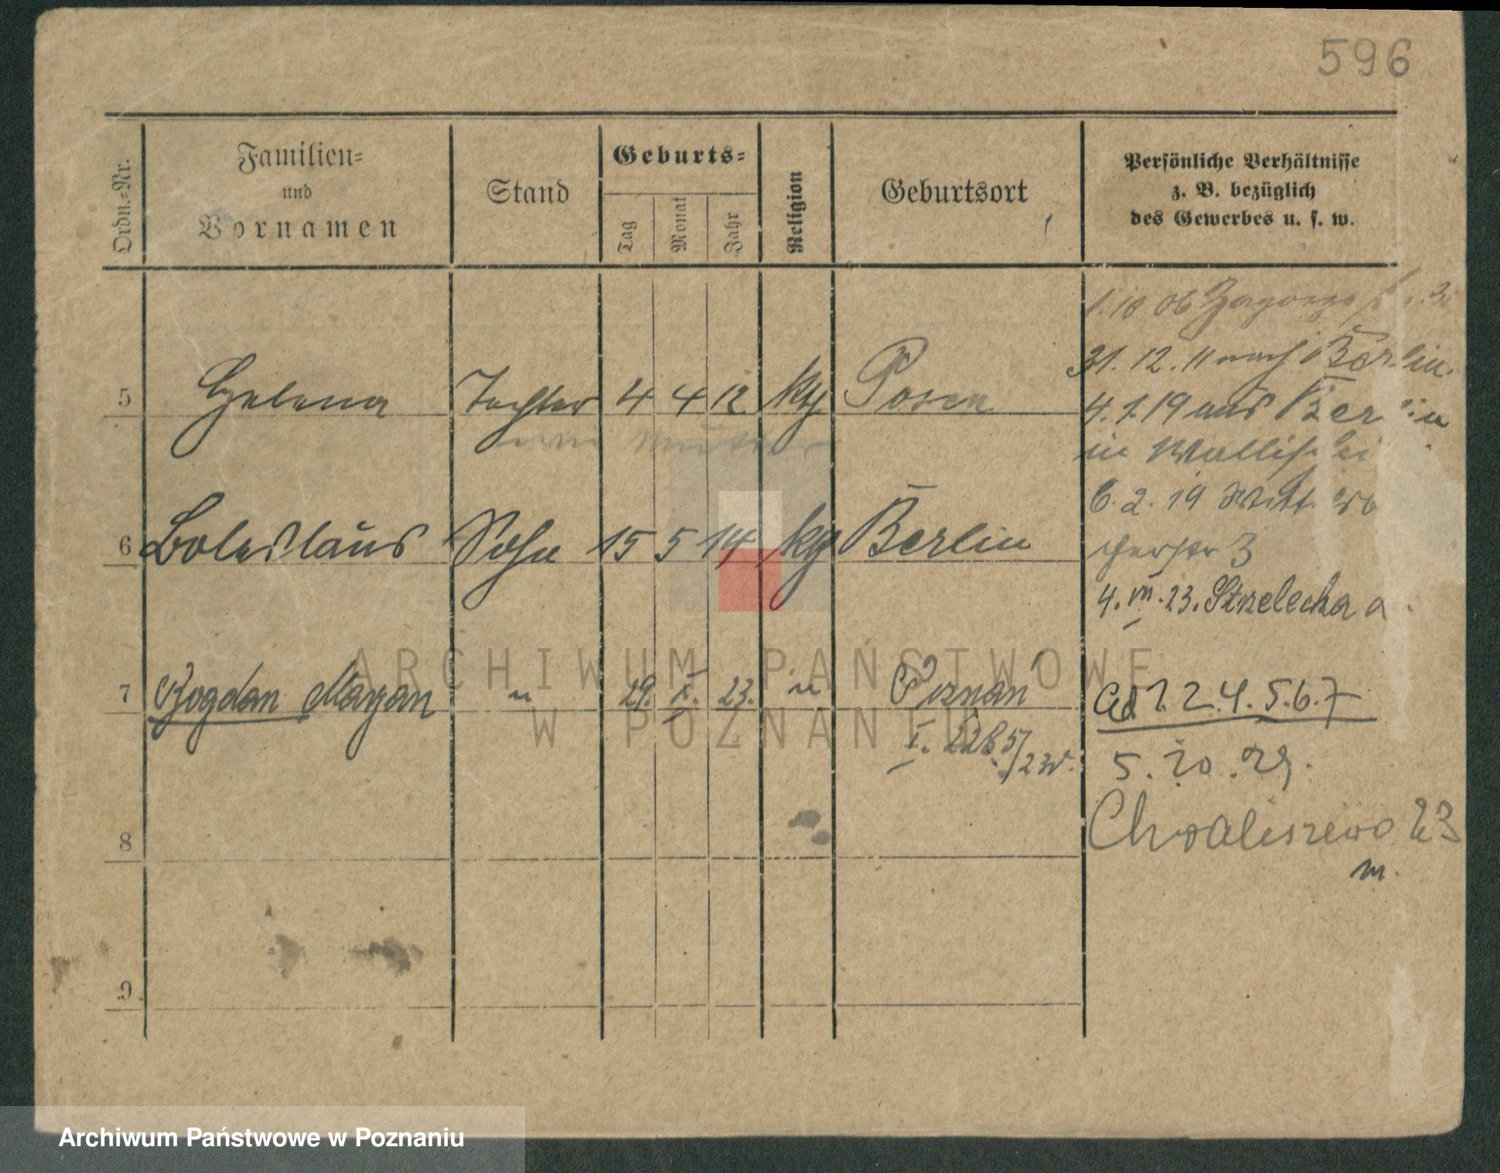 596
Ordn.-Nr.
Familien-
und
Vornamen
Stand
Geburts-
Tag
Monat
Jahr
Religion
Geburtsort
Persönliche Verhältnisse
z. B. bezüglich
des Gewerbes u. s. w.
1.10 06
31. 12. 11 nach Berlin.
5 Helena Tochter 4 4 12 kth Posen
4. 1. 19 aus Berlin
in
6. 2. 19
6 Boleslaus Sohn 15 5 14 kth Berlin
3
4. VII. 23. Strzelecka
7 Bogdan Maryan " 29. X. 23. " Poznań
ad 1. 2. 4. 5. 6. 7
I. 2285/23
5. 10. 29.
8
Chwaliszewo 23
m.
9
ARCHIWUM PAŃSTWOWE
W POZNANIU
Archiwum Państwowe w Poznaniu